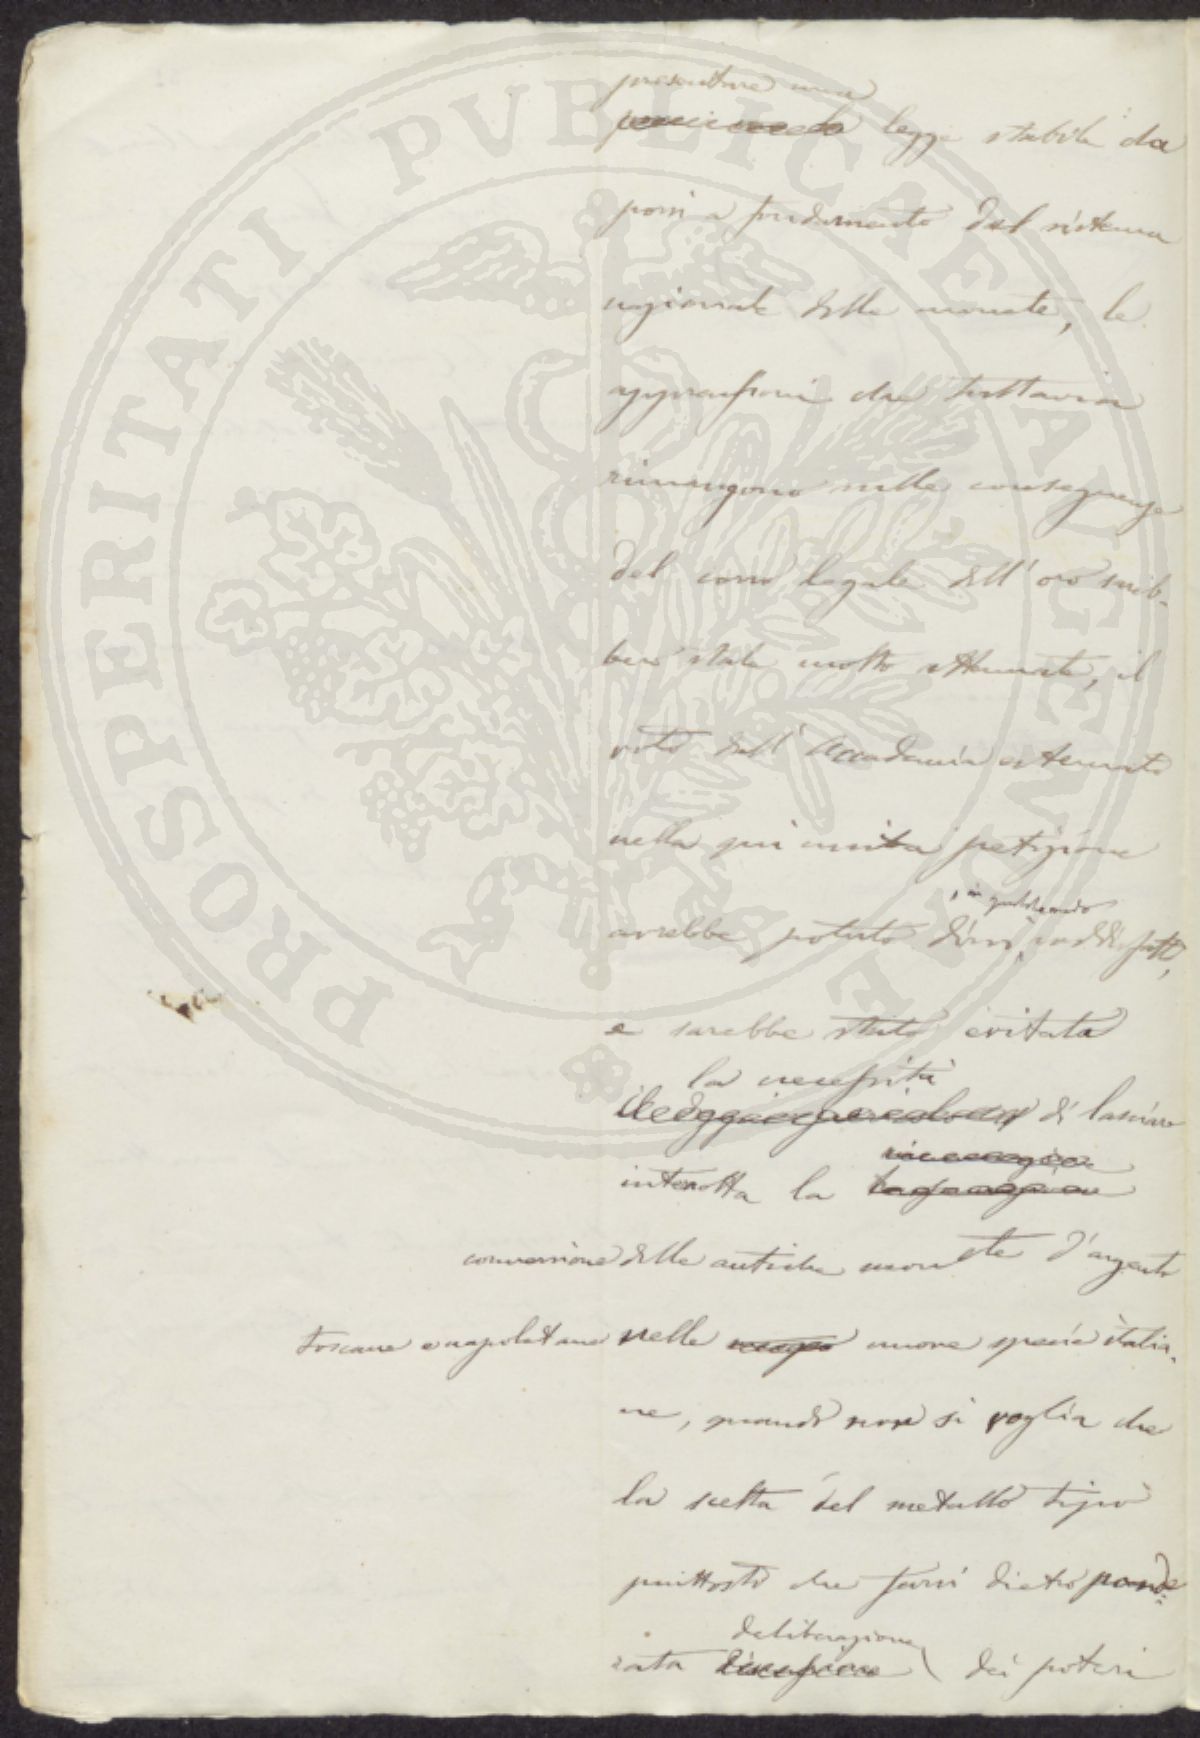 presentare una
legge stabile da
porsi a fondamento del sistema
nazionale delle monete, le
apprensioni che tuttavia
rimangono sulle conseguenze
del corso legale dell'oro sareb-
bero state molto attenuate, il
voto dell'Accademia esternato
nella qui unita petizione
avrebbe potuto dirsi, in gran parte soddisfatto,
e sarebbe stata evitata
la necessità
di lasciare
interrotta la
conversione delle antiche monete d'argento
toscane e napoletane nelle nuove specie italia-
ne, quando non si voglia che
la scelta del metallo tipo
piuttosto che farsi dietro ponde-
deliberazione
rata discussione dei poteri
PROSPERITATI PUBLICAE AUGENDAE